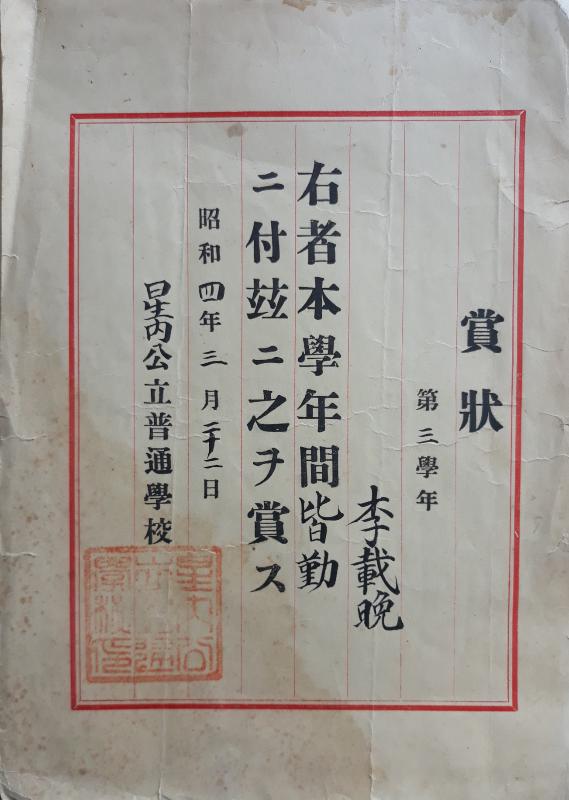 賞狀
第三學年
李載晩
右者本學年間皆勤
ニ付玆ニ之ヲ賞ス
昭和四年三月二十二日
星内公立普通學校
星内公
立普通
學校印